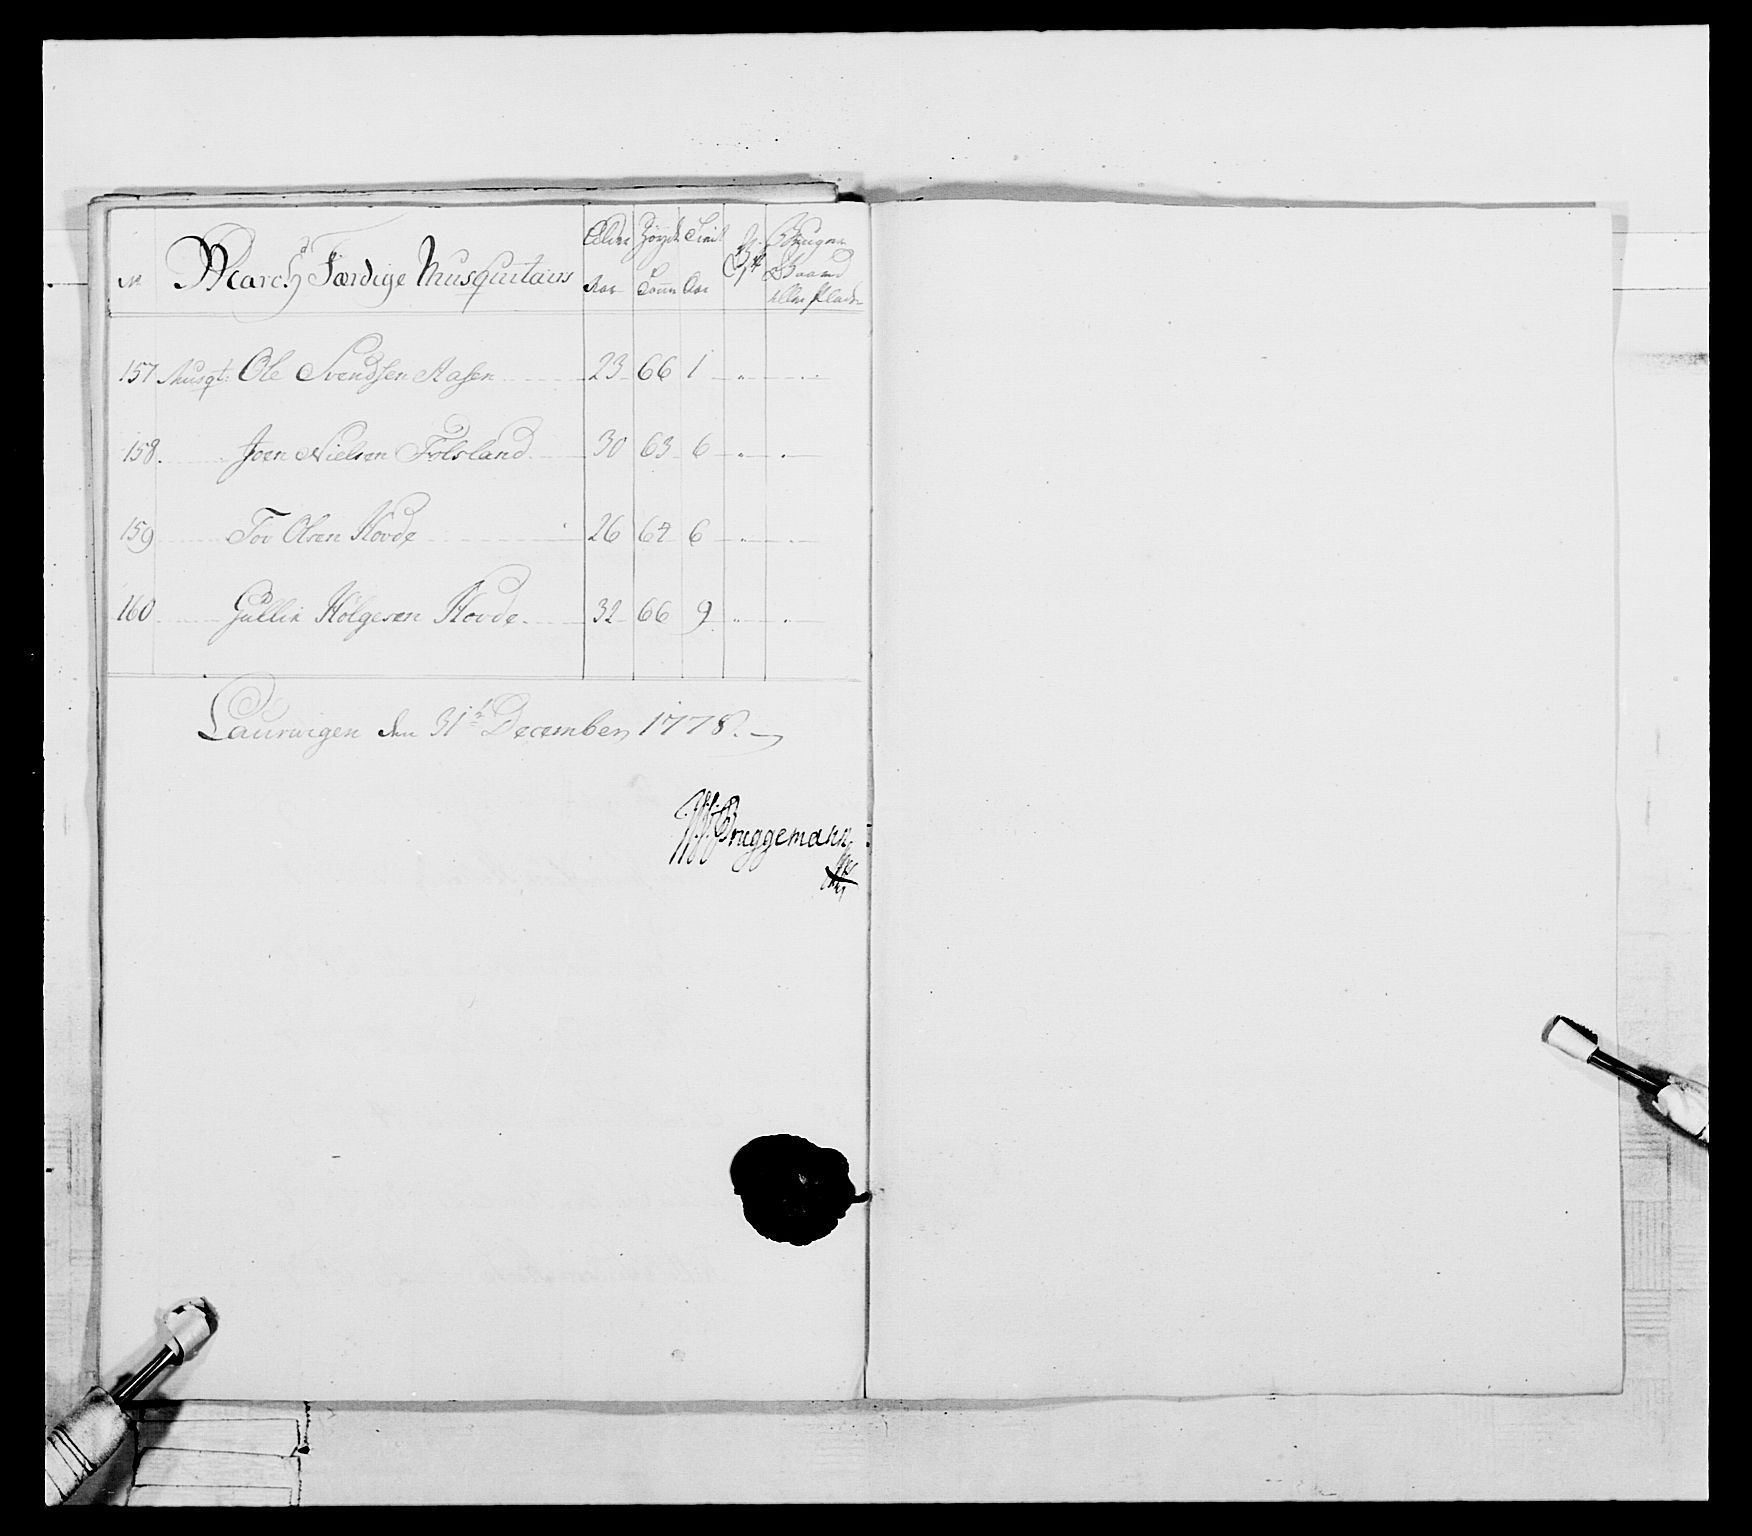 No March Færdige Musquetairs Alder Aar Høyde Tomm Tient Aar Gift Bruger Gaard eller Plads
157 Musqt: Ole Svendsen Aasen 23 66 1
158. Joen Nielsen Folsland 30 63 6
159 Tov Olsen Hovde 26 64 6
160 Gullik Holgersen Hovde. 32 66 9
Laurwigen den 31te December 1778.
Bruggemann